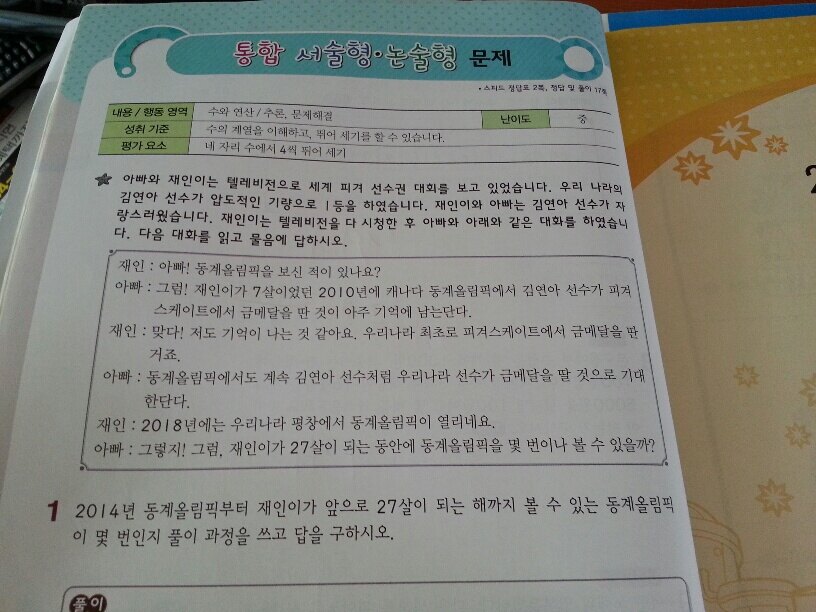 통합 서술형·논술형 문제
• 스피드 정답표 2쪽, 정답 및 풀이 17쪽
내용 / 행동 영역 수와 연산 / 추론, 문제해결 난이도 중
성취 기준 수의 계열을 이해하고, 뛰어 세기를 할 수 있습니다.
평가 요소 네 자리 수에서 4씩 뛰어 세기
아빠와 재인이는 텔레비전으로 세계 피겨 선수권 대회를 보고 있었습니다. 우리 나라의
김연아 선수가 압도적인 기량으로 1등을 하였습니다. 재인이와 아빠는 김연아 선수가 자
랑스러웠습니다. 재인이는 텔레비전을 다 시청한 후 아빠와 아래와 같은 대화를 하였습니
다. 다음 대화를 읽고 물음에 답하시오.
재인 : 아빠! 동계올림픽을 보신 적이 있나요?
아빠 : 그럼! 재인이가 7살이었던 2010년에 캐나다 동계올림픽에서 김연아 선수가 피겨
스케이트에서 금메달을 딴 것이 아주 기억에 남는단다.
재인 : 맞다! 저도 기억이 나는 것 같아요. 우리나라 최초로 피겨스케이트에서 금메달을 딴
거죠.
아빠 : 동계올림픽에서도 계속 김연아 선수처럼 우리나라 선수가 금메달을 딸 것으로 기대
한단다.
재인 : 2018년에는 우리나라 평창에서 동계올림픽이 열리네요.
아빠 : 그렇지! 그럼, 재인이가 27살이 되는 동안에 동계올림픽을 몇 번이나 볼 수 있을까?
1 2014년 동계올림픽부터 재인이가 앞으로 27살이 되는 해까지 볼 수 있는 동계올림픽
이 몇 번인지 풀이 과정을 쓰고 답을 구하시오.
풀이